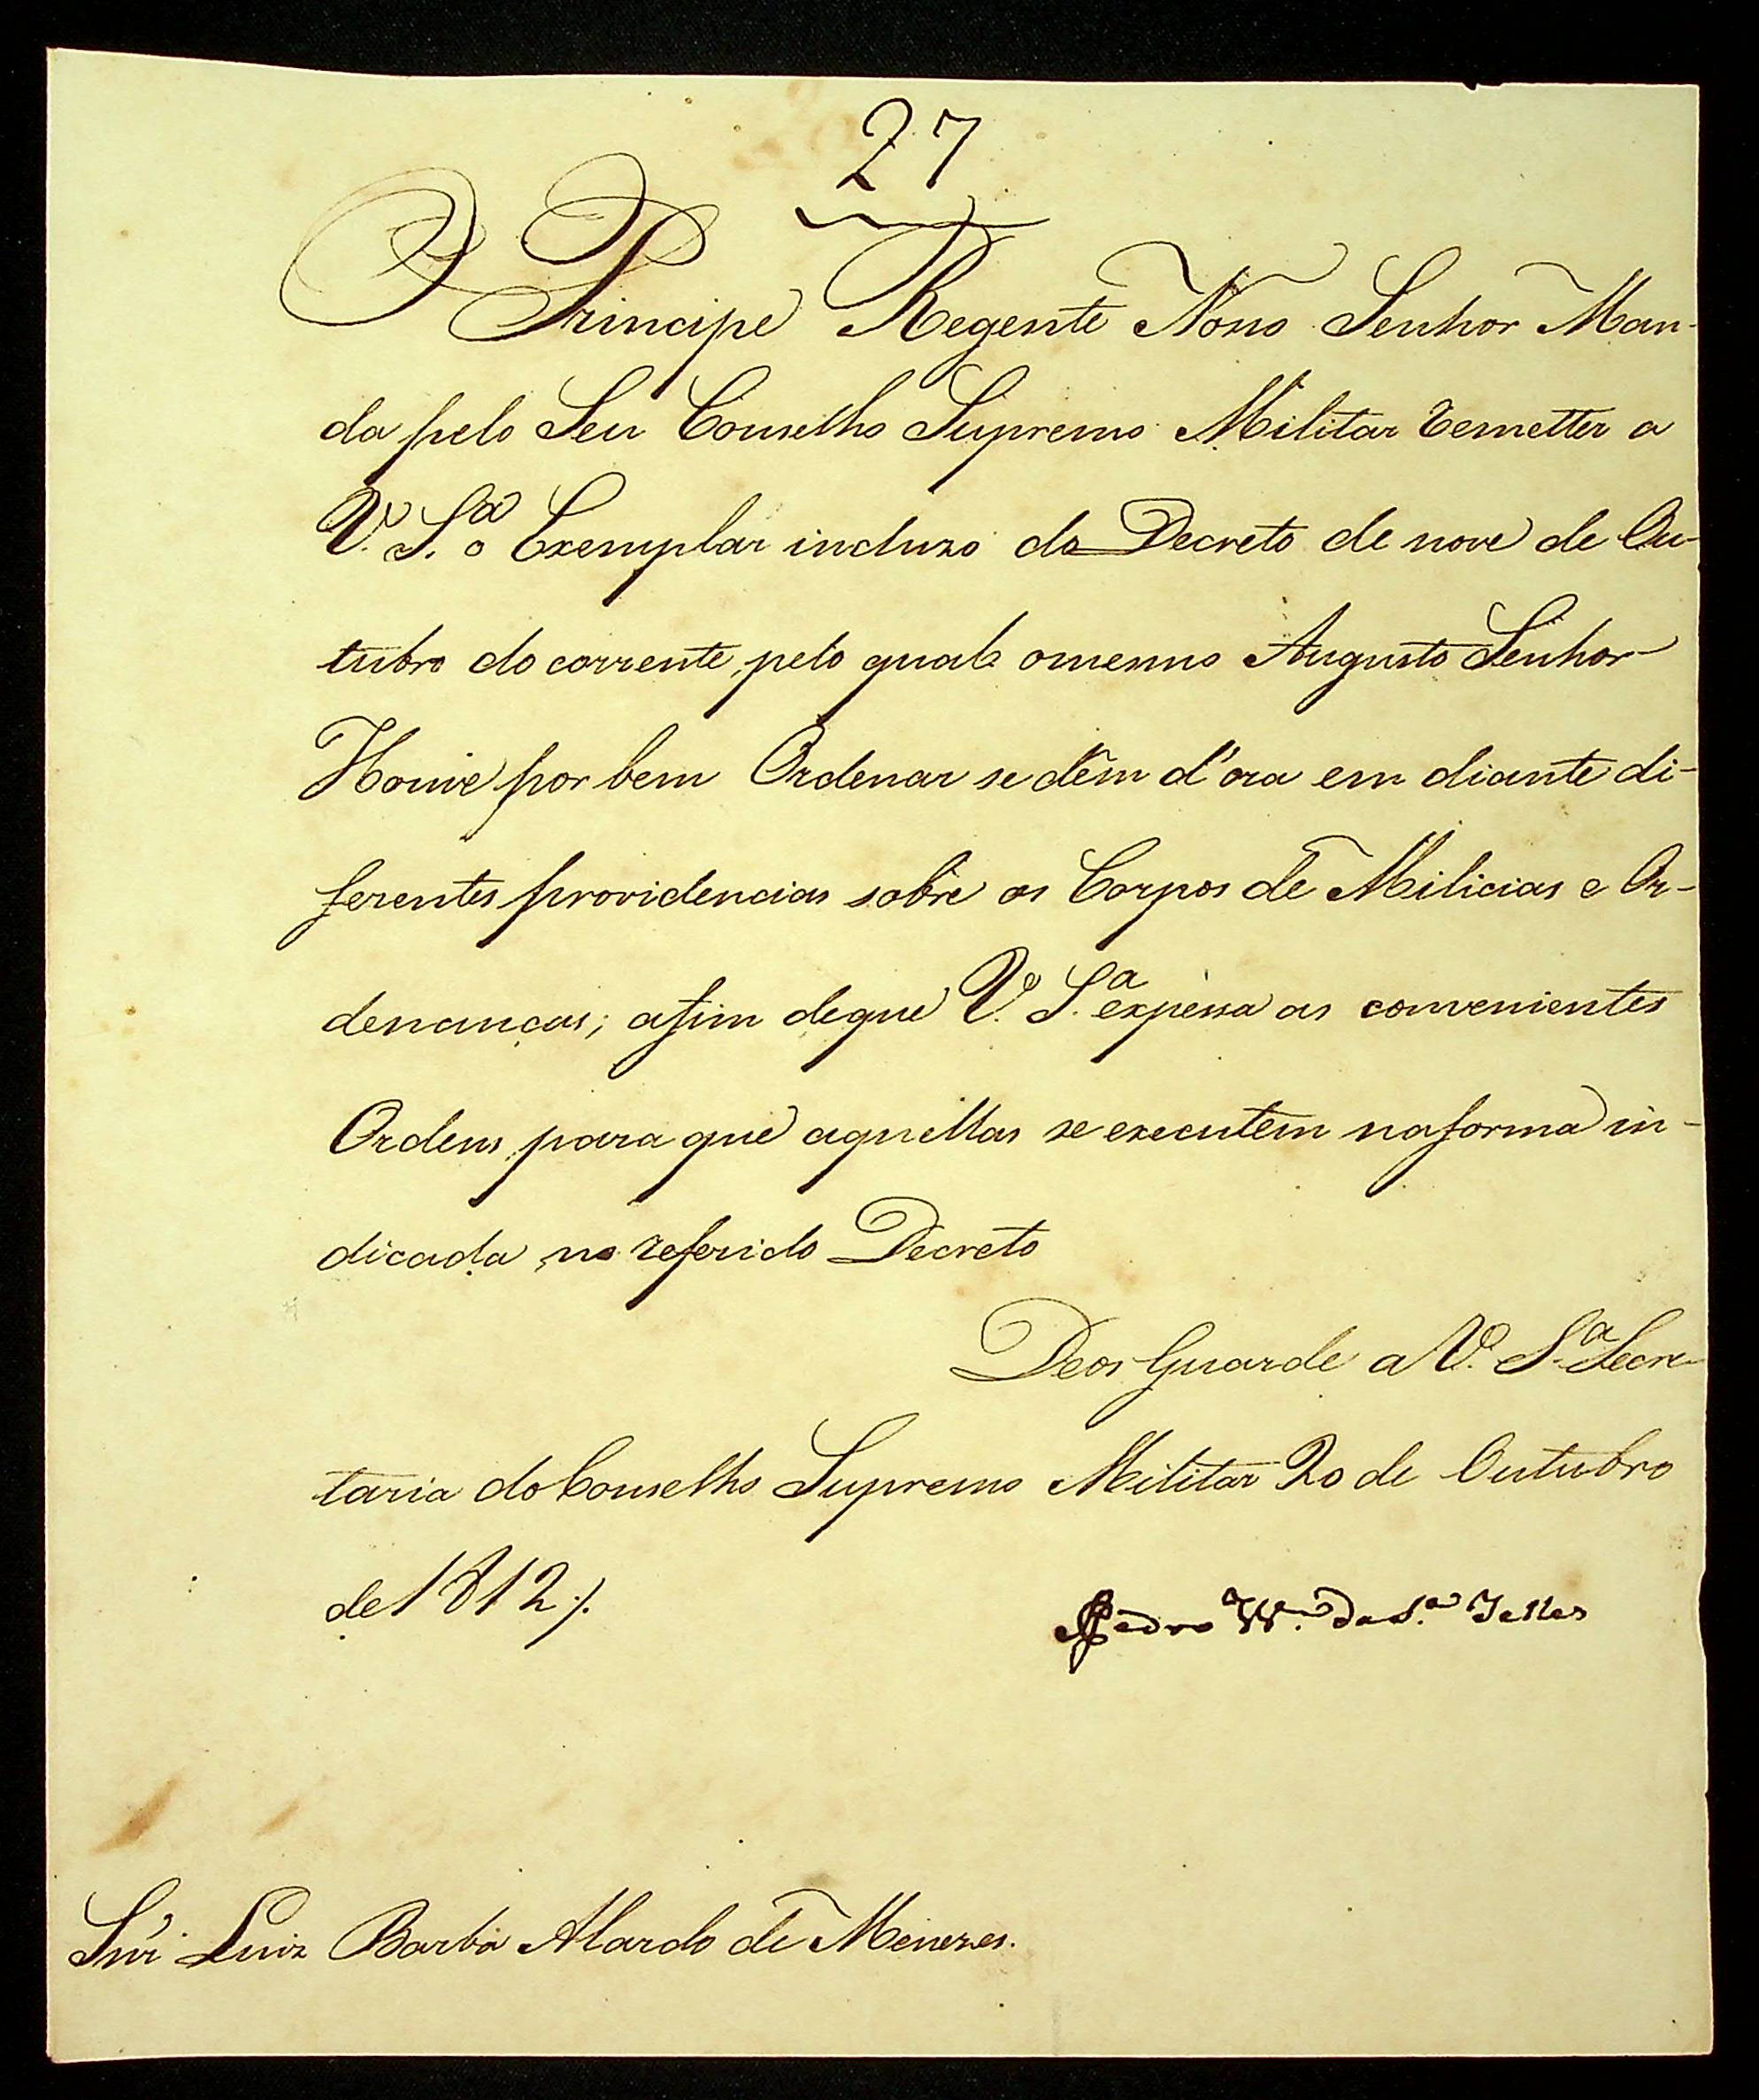 27
O Principe Regente Nosso Senhor Man-
da pelo Seu Conselho Supremo Militar remetter a
V. S.ª o Exemplar incluzo do Decreto de nove de Ou-
tubro do corrente, pelo qual o mesmo Augusto Senhor
Houve por bem Ordenar se dêm d'ora em diante di-
ferentes providencias sobre os Corpos de Milicias e Or-
denanças; afim de que V. S.ª expessa as convenientes
Ordens, para que aquellas se executem na forma in-
dicada no referido Decreto
Deos Guarde a V. S.ª Secre-
taria do Conselho Supremo Militar 20 de Outubro
de 1812 /.
Pedro V.ª da S.ª Telles
Snr. Luiz Barba Alardo de Menezes.